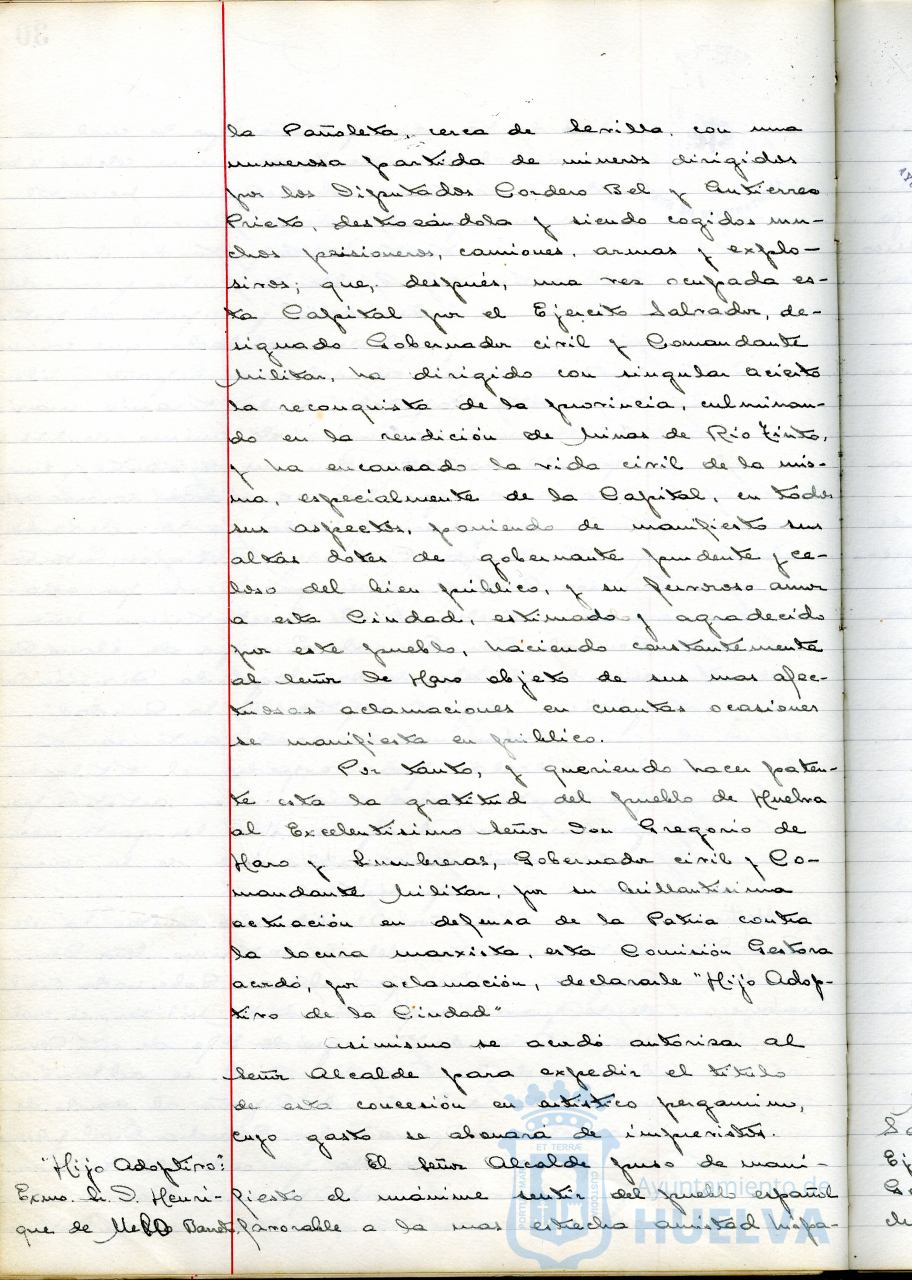 la Pañoleta, cerca de Sevilla, con una
numerosa partida de mineros dirigidos
por los Diputados Cordero Bel y Gutierrez
Prieto, destrozándola y siendo cogidos mu-
chos prisioneros, camiones, armas y explo-
sivos; que, después, una vez ocupada es-
ta Capital por el Ejercito Salvador, de-
signado Gobernador civil y Comandante
Militar, ha dirigido con singular acierto
la reconquista de la provincia, culminan-
do en la rendición de Minas de Rio Tinto,
y ha encauzado la vida civil de la mis-
ma, especialmente de la Capital, en todos
sus aspectos, poniendo de manifiesto sus
altas dotes de gobernante prudente y ce-
loso del bien público, y su fervoroso amor
a esta Ciudad, estimado y agradecido
por este pueblo, haciendo constantemente
al Señor De Haro objeto de sus mas afec-
tuosas aclamaciones en cuantas ocasiones
se manifiesta en público.
Por tanto, y queriendo hacer paten-
te esta la gratitud del pueblo de Huelva
al Excelentisimo Señor Don Gregorio de
Haro y Lumbreras, Gobernador civil y Co-
mandante Militar, por su brillantisima
actuación en defensa de la Patria contra
la locura marxista, esta Comisión Gestora
acordó, por aclamación, declararle "Hijo Adop-
tivo de la Ciudad"
Asimismo se acordó autorizar al
Señor Alcalde para expedir el título
de esta concesión en artístico pergamino,
cuyo gasto se abonará de imprevistos.
"Hijo Adoptivo":
Exmo. Sr. D. Henri-
que de Mello
El Señor Alcalde puso de mani-
fiesto el unánime sentir del pueblo español
favorable a la mas estrecha amistad hispa-
30
ET TERRÆ
PORTUS MARIS
CUSTODIA
Ayuntamiento de
HUELVA